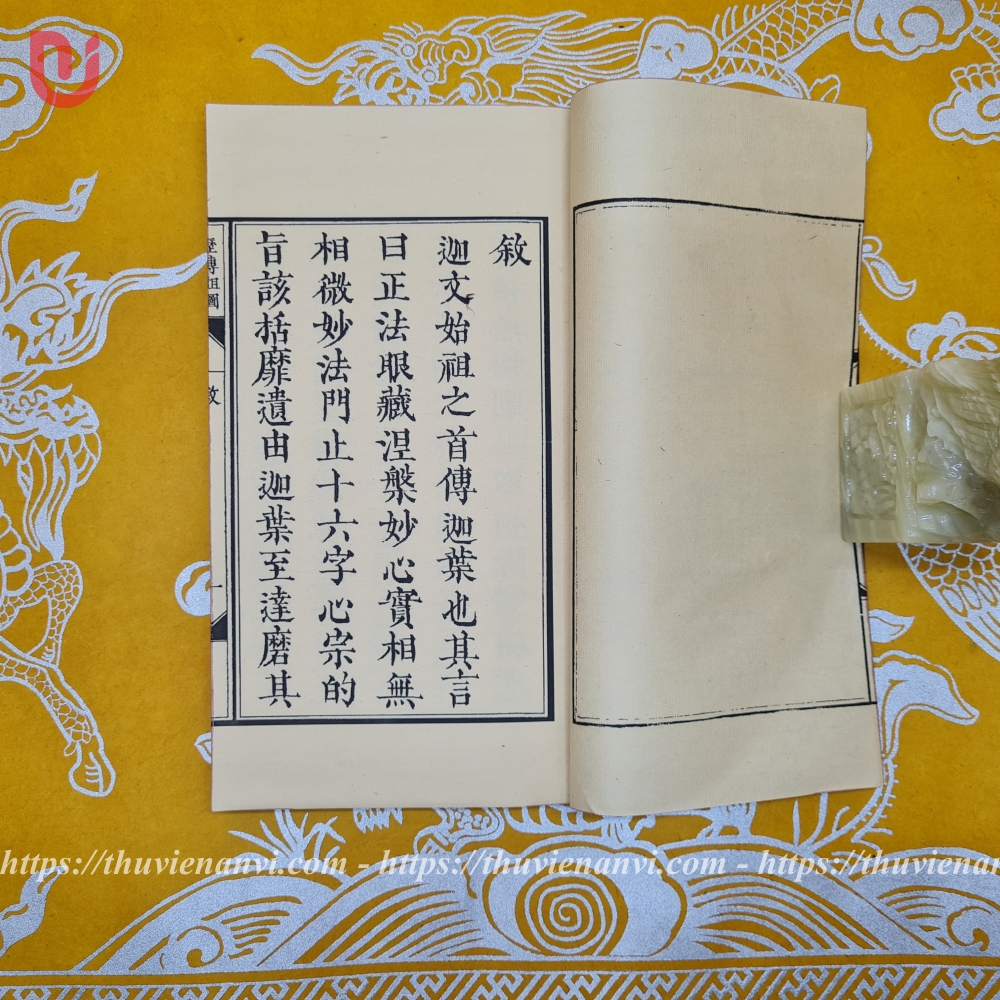 敘
迦文始祖之首傳迦葉也其言
曰正法眼藏涅槃妙心實相無
相微妙法門止十六字心宗的
旨該括靡遺由迦葉至達磨其
歷傳祖圖
敘
一
https://thuvienanvi.com - https://thuvienanvi.com - https://thuvienanvi